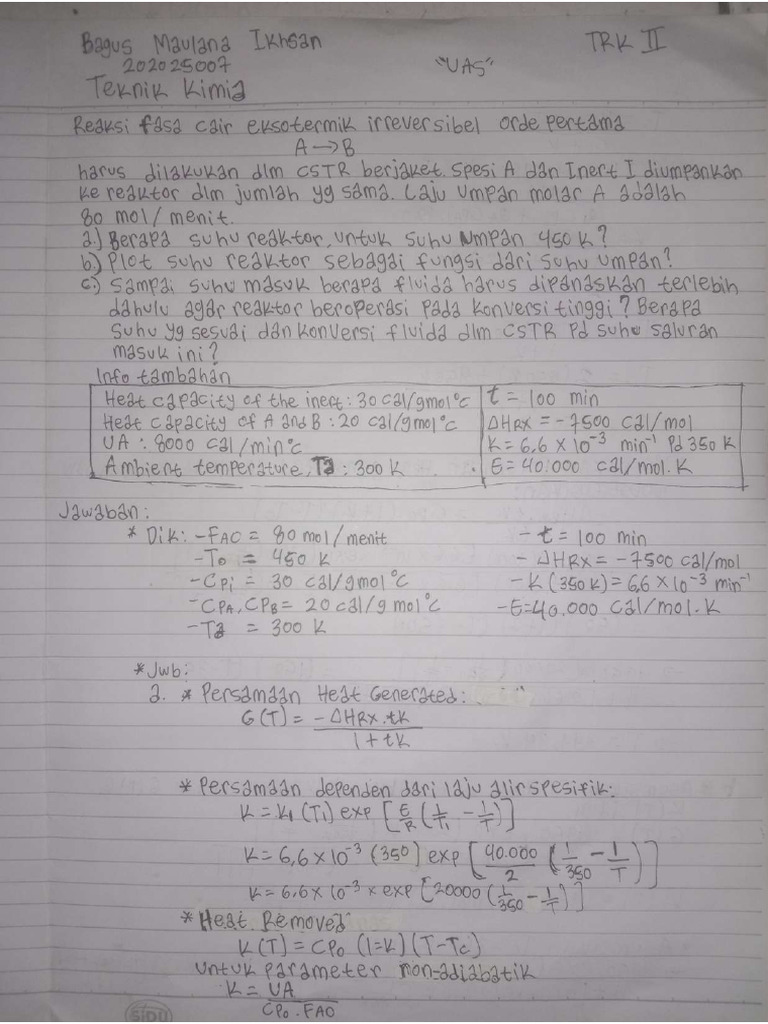 Bagus Maulana Ikhsan
TRK II
202025007
"UAS"
Teknik Kimia
Reaksi fasa cair eksotermik irreversibel orde pertama
A → B
harus dilakukan dlm CSTR berjaket. Spesi A dan Inert I diumpankan
ke reaktor dlm jumlah yg sama. Laju umpan molar A adalah
80 mol/menit.
a.) Berapa suhu reaktor, untuk suhu umpan 450 K?
b.) Plot suhu reaktor sebagai fungsi dari suhu umpan?
c.) Sampai suhu masuk berapa fluida harus dipanaskan terlebih
dahulu agar reaktor beroperasi pada konversi tinggi? Berapa
suhu yg sesuai dan konversi fluida dlm CSTR Pd suhu saluran
masuk ini?
Info tambahan
Heat capacity of the inert : 30 cal/gmol°c
Heat capacity of A and B : 20 cal/gmol°c
UA : 8000 cal/min°c
Ambient temperature, Ta : 300 K
t = 100 min
ΔHRX = -7500 cal/mol
K = 6,6 x 10⁻³ min⁻¹ Pd 350 K
E = 40.000 cal/mol.K
Jawaban :
* Dik : -FAO = 80 mol/menit
-To = 450 K
-Cpi = 30 cal/gmol°c
-CPA, CPB = 20 cal/g mol°c
-Ta = 300 K
- t = 100 min
- ΔHRX = -7500 cal/mol
- K (350 K) = 6,6 x 10⁻³ min⁻¹
- E = 40.000 cal/mol.K
* Jwb :
a. * Persamaan Heat Generated :
G(T) = -ΔHRX . tK
1 + tK
* Persamaan dependen dari laju alir spesifik :
K = K1 (T1) exp [E/R (1/T1 - 1/T)]
K = 6,6 x 10⁻³ (350) exp [40.000/2 (1/350 - 1/T)]
K = 6.6 x 10⁻³ x exp [20000 (1/350 - 1/T)]
* Heat Removed
K (T) = CPo (1=K) (T-Tc)
untuk parameter non-adiabatik
K = UA
CPo . FAO
SIDU